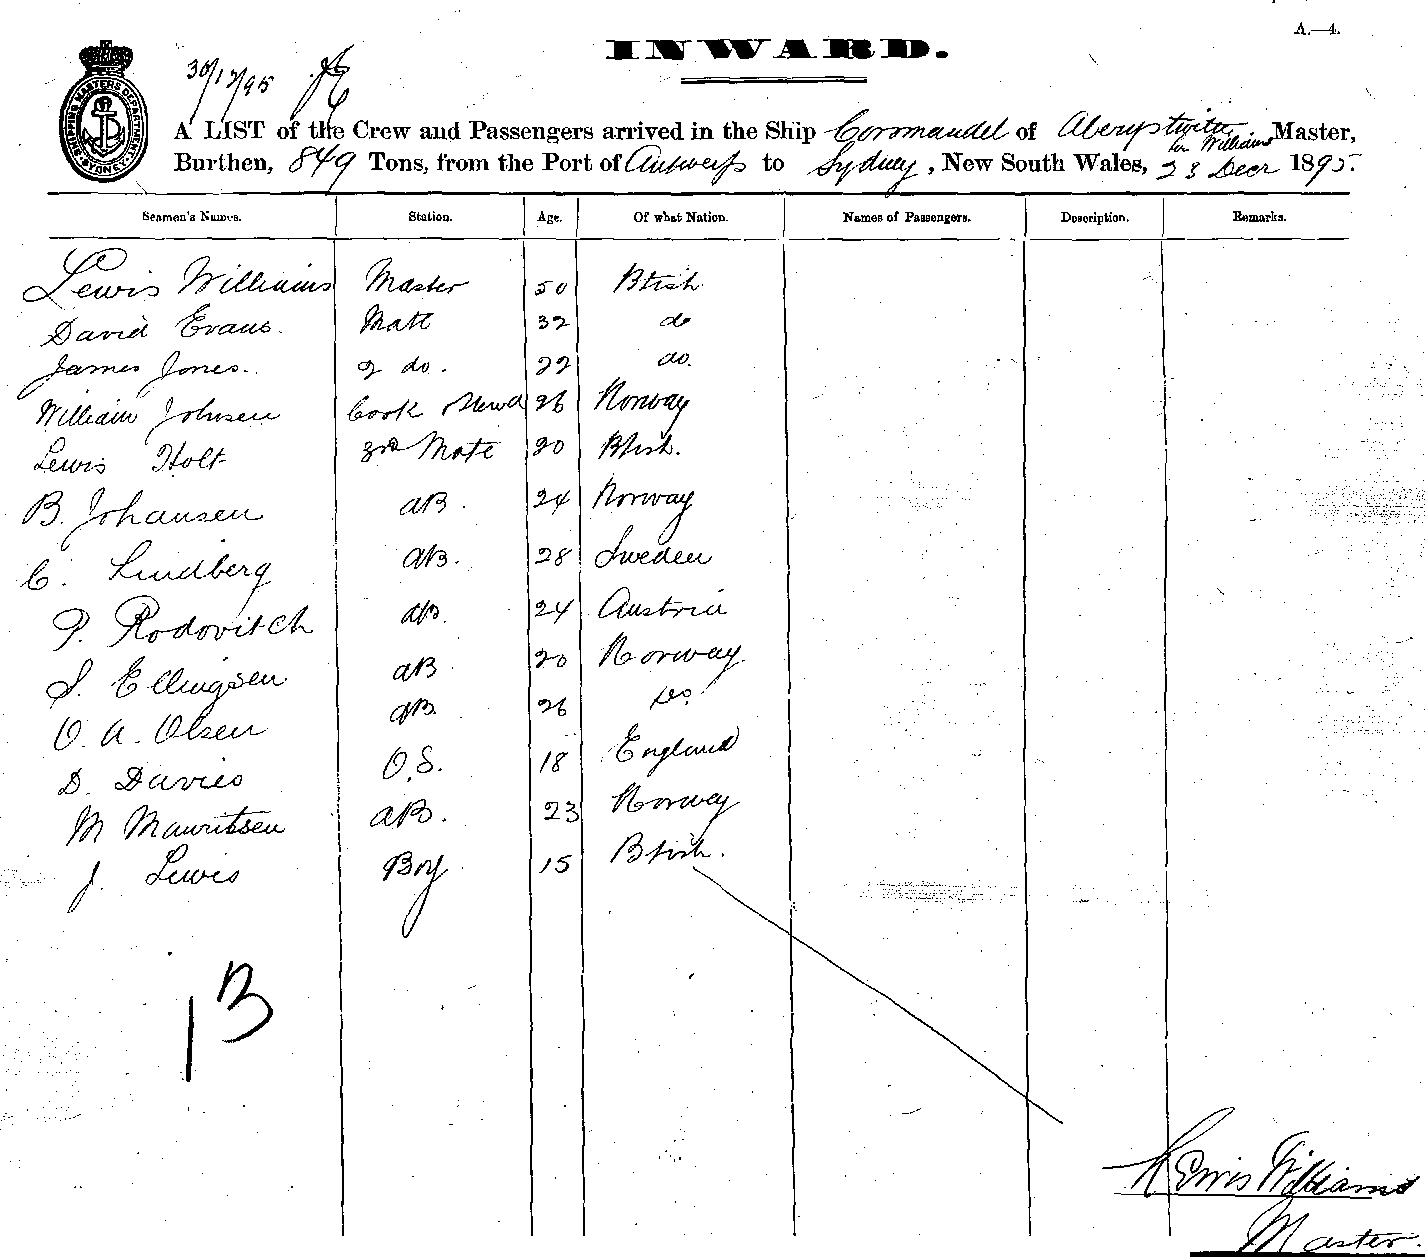 A.—4.
INWARD.
30/12/95
SHIPPING MASTERS DEPARTMENT SYDNEY
A LIST of the Crew and Passengers arrived in the Ship Coromandel of Aberystwith, Lew Williams Master,
Burthen, 849 Tons, from the Port of Antwerp to Sydney, New South Wales, 23 Decr 1895.
Seamen's Names. Station. Age. Of what Nation. Names of Passengers. Description. Remarks.
Lewis Williams Master 50 Btish
David Evans. Mate 32 do
James Jones. 2 do. 22 do.
William Johnsen Cook & Stewd 26 Norway
Lewis Holt 3rd Mate 20 Btish.
B. Johansen AB. 24 Norway
C. Lindberg AB. 28 Sweden
P. Rodovitch AB. 24 Austria
S. Ellingsen AB 20 Norway
O. A. Olsen AB. 26 Do.
D. Davies O.S. 18 England
M Mauritsen AB. 23 Norway
J. Lewis Boy 15 Btish.
13
Lewis Williams
Master.